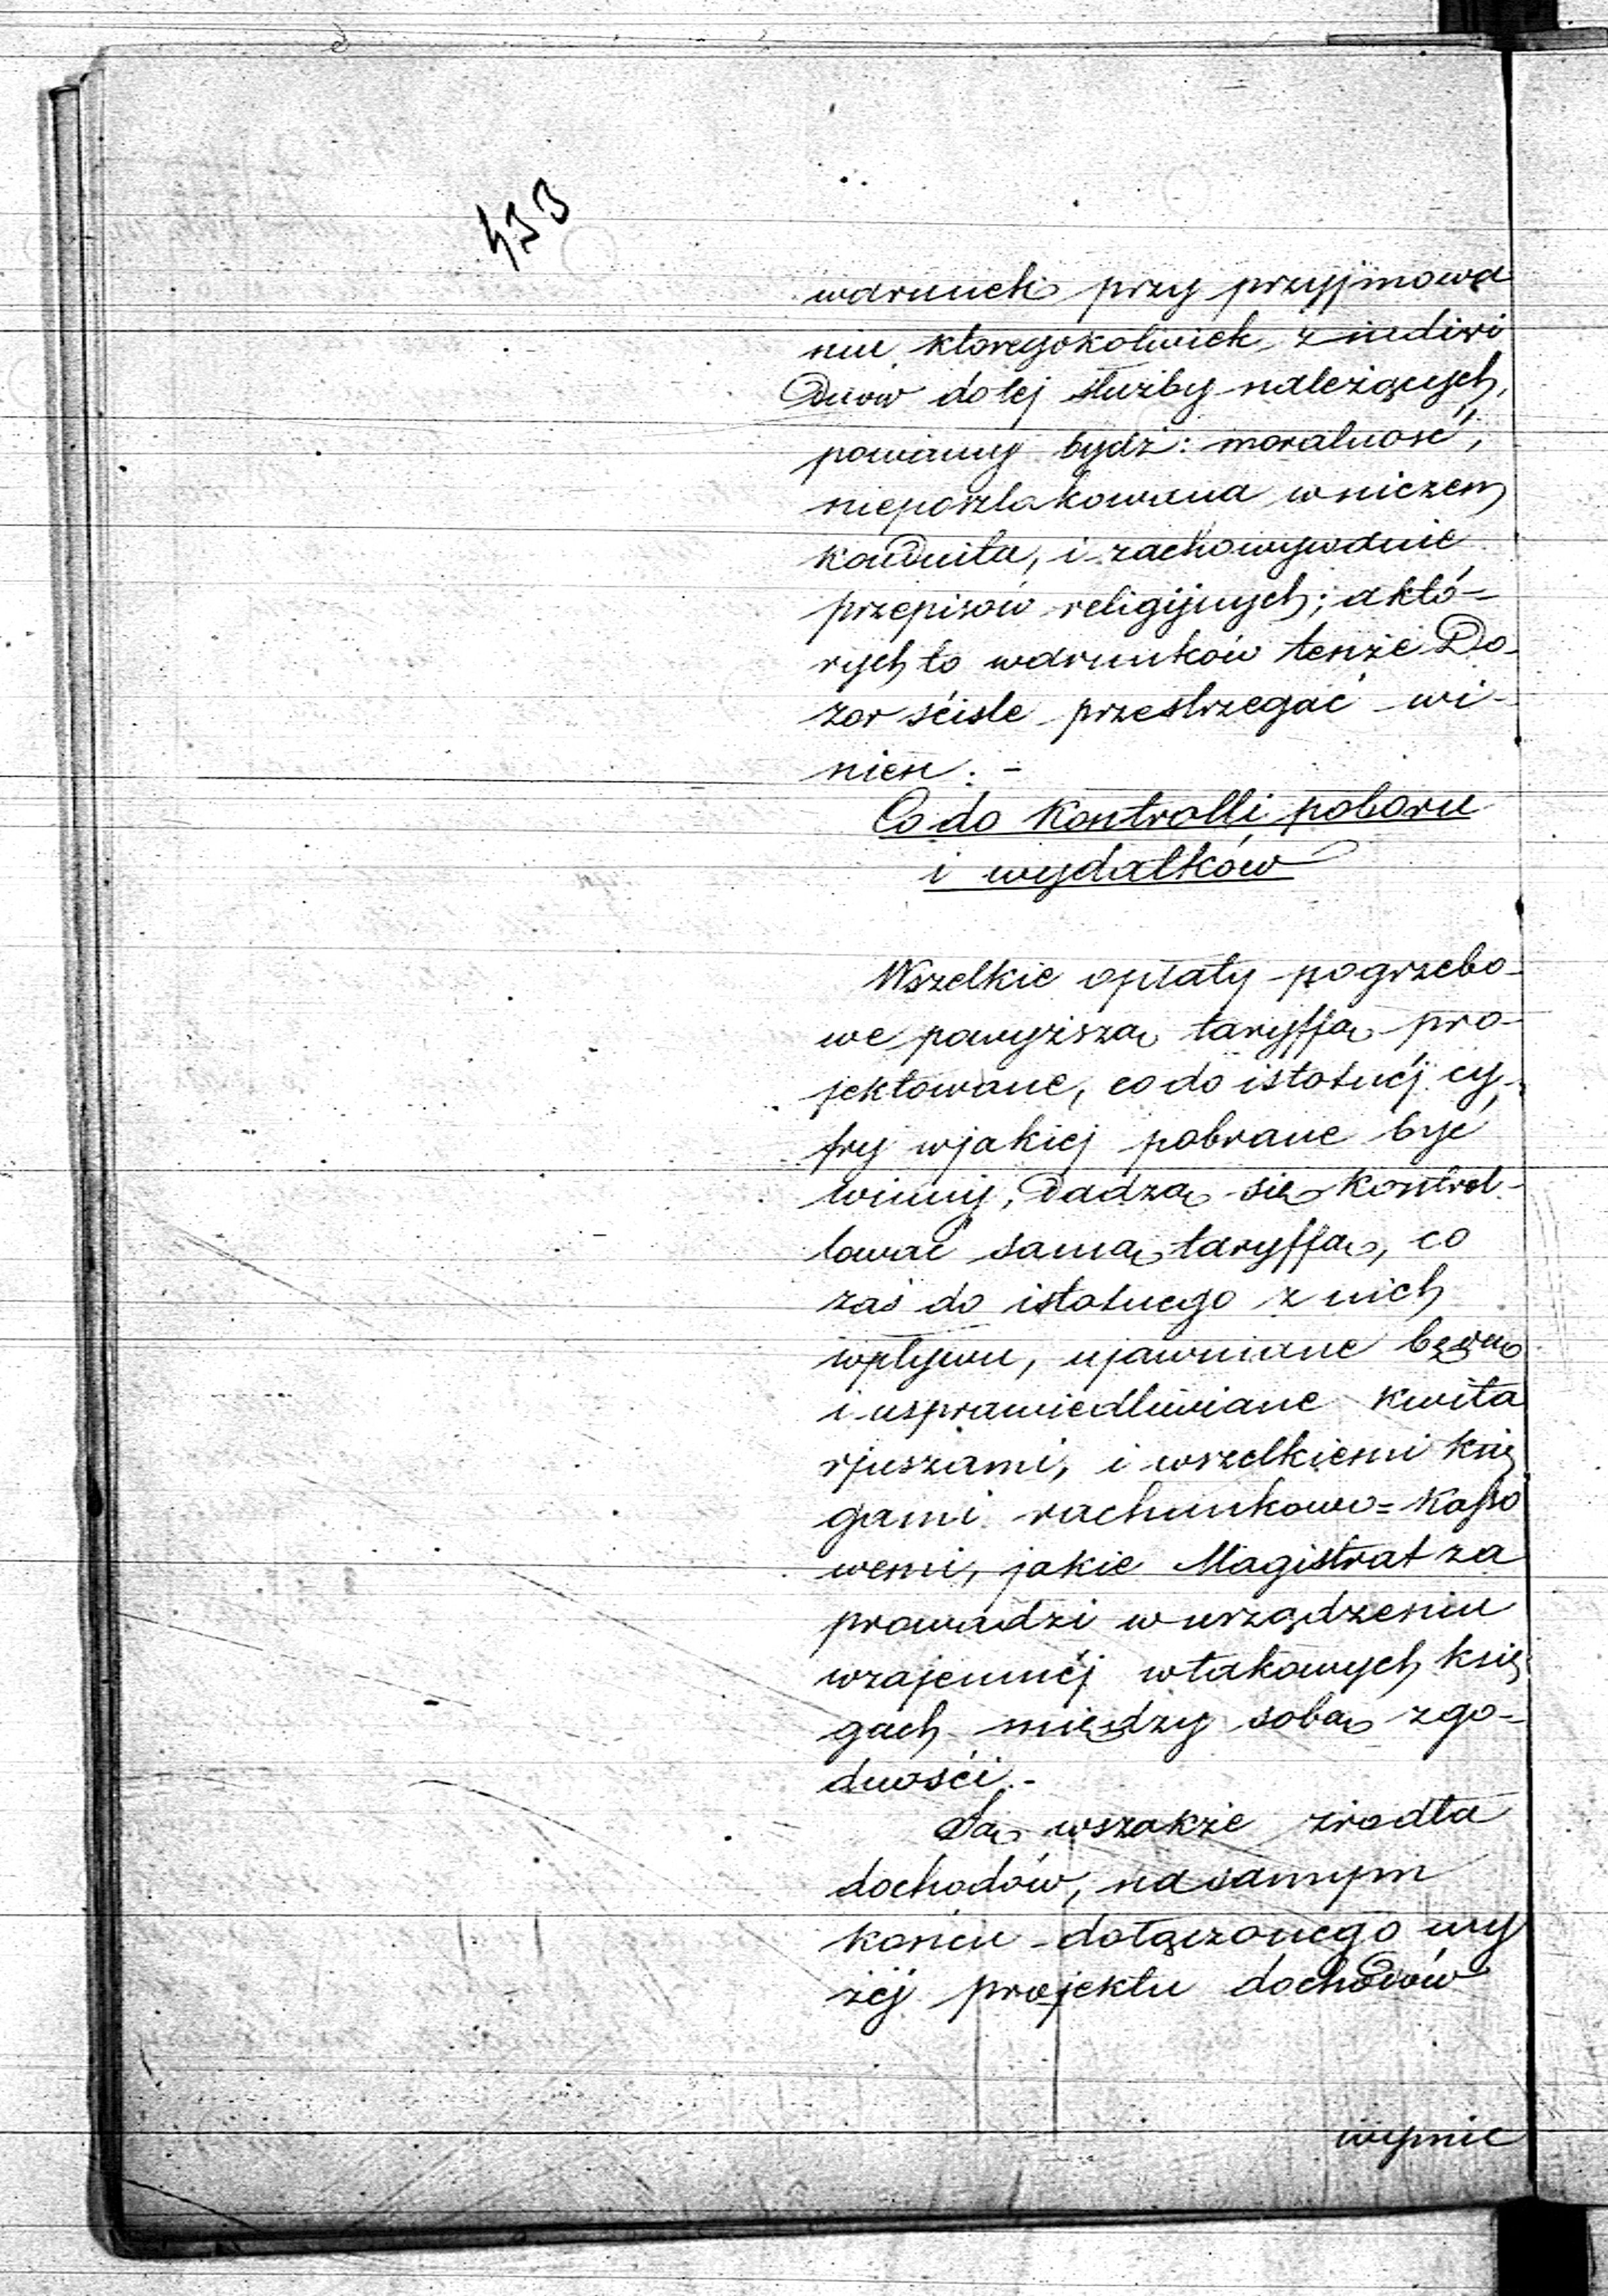 433
warunek przy przyjmowa
niu któregokolwiek z indiwi
duow do tej służby należących,
powinny bydź: moralność,
nieposzlakowana w niczem
konduita, i zachowywanie
przepisów religijnych; a któ=
rych to warunków tenże Do-
zor ściśle przestrzegać wi-
nien. -
Co do Kontrolli poboru
i wydatków
Wszelkie opłaty pogrzebo-
we powyższą taryffą pro-
jektowane, co do istotnéj cy-
fry w jakiej pobrane być
winny, dadzą się kontrol-
lować samą taryffą, co
zaś do istotnego z nich
wpływu, ujawniane będą
i usprawiedliwiane kwita
rjuszami, i wszelkiemi księ
gami rachunkowo=kasso
wemi, jakie Magistrat za
prowadzi w urządzeniu
wzajemnéj w takowych księ
gach między sobą zgo-
dności. -
Są wszakże źrodła
dochodów, na samym
końcu dołączonego wy
żéj projektu dochodów
wymie